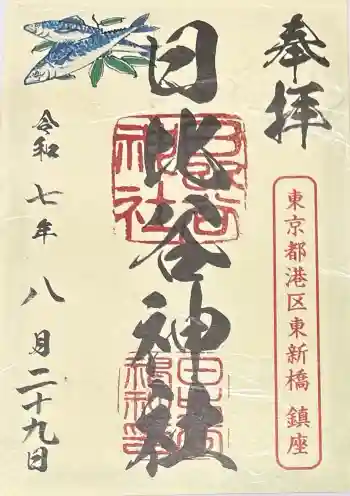 奉拝
東京都港区東新橋 鎮座
日比谷神社
日比谷神社
令和七年八月二十九日